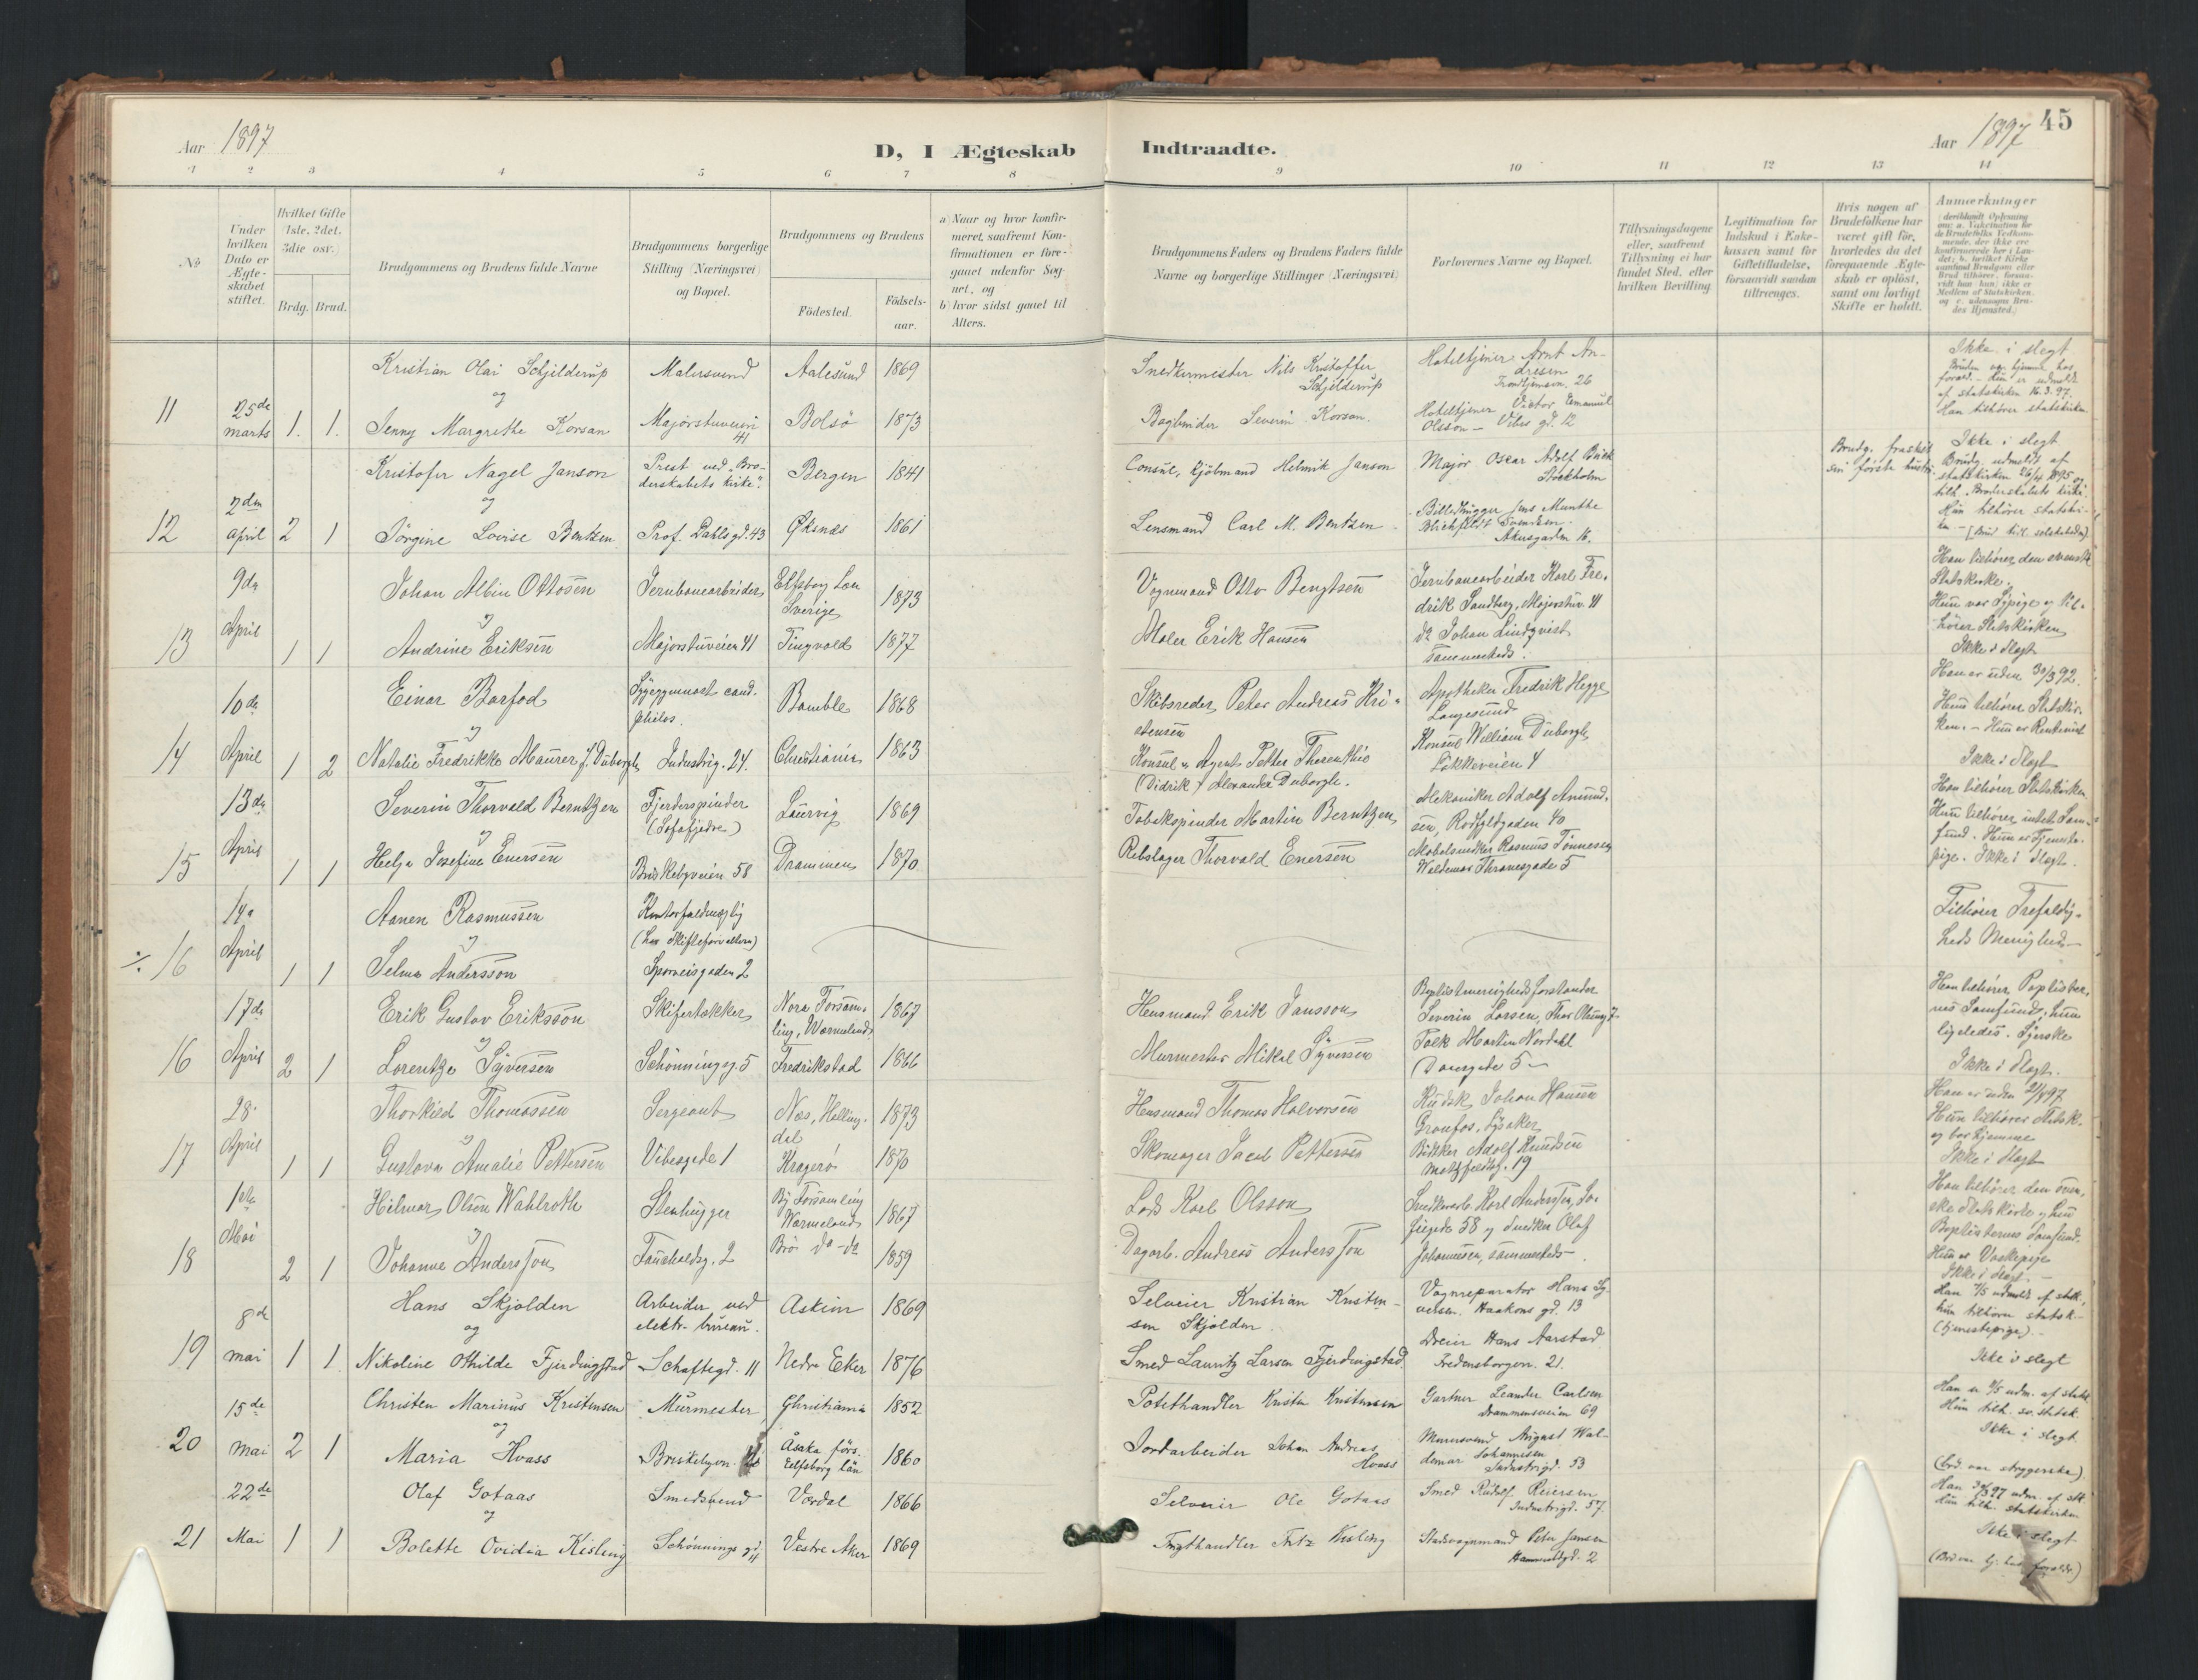 Aar 1897
D, I Ægteskab Indtraadte.
Aar 1897
45
1 2 3 4 5 6 7 8 9 10 11 12 13 14
No
Under hvilken Dato er Ægteskabet stiftet.
Hvilket Gifte (1ste, 2det, 3die osv.)
Brdg. Brud.
Brudgommens og Brudens fulde Navne
Brudgommens borgerlige Stilling (Næringsvei) og Bopæl.
Brudgommens og Brudens
Födested.
Födselsaar.
a) Naar og hvor konfirmeret, saafremt Konfirmationen er foregaaet udenfor Sognet, og
b) hvor sidst gaaet til Alters.
Brudgommens Faders og Brudens Faders fulde Navne og borgerlige Stillinger (Næringsvei)
Forlovernes Navne og Bopæl.
Tillysningsdagene eller, saafremt Tillysning ei har fundet Sted, efter hvilken Bevilling
Legitimation for Indskud i Enkekassen samt for Giftetilladelse, forsaavidt saadan tiltrænges.
Hvis nogen af Brudefolkene har været gift før, hvorledes da det foregaaende Ægteskab er oplöst, samt om lovligt Skifte er holdt.
Anmerkninger
11
25de marts
1. 1.
Kristian Olai Schjelderup
og
Jenny Margrethe Korsan
Malersvend
Majorstuveien 41
Aalesund 1869
Bolsø 1873
Snedkermester Nils Kristoffer Schjelderup
Bogbinder Severin Korsan.
Hoteltjener Arnt Andresen
Trondhjemsv. 26
Hoteltjener Victor Emanuel Olsson - Vibes gd. 12
Ikke i slegt
Bruden var hjemme hos foræld. - Hun er udmeldt af statskirken 16.3.97.
Han tilhører statskirken
12
2den April
2 1
Kristofer Nagel Janson
og
Jørgine Lovise Bentzen
Prest ved "Broderskabets kirke".
Prof. Dahls gd. 43
Bergen 1841
Øksnæs 1861
Consul, kjøbmand Helmik Janson
Lensmand Carl M. Bentzen
Major Oscar Adolf Bäck Stockholm
Billedhugger Jens Munthe Svendsen
Akersgaden 16.
Brudg. fraskilt sin første hustru.
Ikke i slegt
Brudg. udmeldt af statskirken 26/4 1895 og tilh. Broderskabets kirke.
Hun tilhører statskirken
13
9de April
1 1
Johan Albin Ottosen
og
Andrine Eriksen
Jernbanearbeider
Majorstuveien 41
Elfsborg Len Sverige 1873
Tingvold 1877
Vognmand Otto Bengtson
Maler Erik Hansen
Jernbanearbeider Karl Fredrik Sandberg, Majorstuv. 41
do Johan Lindqvist
sammesteds.
Han tilhører den svenske Statskirke.
Hun var Sypige og tilhører Statskirken
Ikke i Slegt
14
10de April
1 2
Einar Barfod
og
Natalie Fredrikke Maurer f. Duborgh
Sygegymnast cand. philos.
Industrig. 24.
Bamble 1868
Christiania 1863
Skibsreder Peter Andreas Kristensen
Konsul & Agent Petter
(Didrik) Alexander Duborgh.
Apotheker Fredrik Hegge
Langesund
Konsul William Duborgh
Løkkeveien 4
Han er uden 30/3 92.
Hun tilhører Statskirken. - Hun er Rentenist
Ikke i Slegt
15
13de April
1 1
Severin Thorvald Berntzen
og
Helga Josefine Enersen
Fjerderspinder
(Sofafjedre)
Briskebyveien 58
Laurvig 1869
Drammen 1870
Tobakspinder Martin Berntzen
Rebslager Thorvald Enersen
Mekaniker Adolf Amundsen, Rodfyldgaden 40
Møbelsnedker Rasmus Tønnesen
Waldemar Thranesgade 5
Han tilhører Statskirken
Hun tilhører intet Samfund. Hun er Tjenestepige. Ikke i Slegt.
÷ 16
14de April
1 1
Aanen Rasmussen
og
Selma Andersson
Kontorfuldmægtig
(hos Skifteforvalteren)
Sporveisgaden 2
Tilhører Trefoldigheds Menighed
16
17de April
2 1
Erik Gustav Eriksson
og
Lorentze Syversen
Skifertækker
Schønningsg. 5
Nora Forsamling, Wermeland 1867
Fredrikstad 1866
Husmand Erik Jansson
Murmester Mikal Syversen
Baptistmenighedsforstander
Severin Larsen, Thor Olsensg 7
Tolk Martin Nordahl
Daasgade 5
Han tilhører Baptisternes Samfund; hun ligeledes. Syerske
Ikke i Slegt.
17
28. April
1 1
Thorkild Thomassen
og
Gustava Amalie Pettersen
Sergeant
Vibesgade 1
Næs, Hallingdal 1873
Kragerø 1870
Husmand Thomas Halvorsen
Skomager Jacob Pettersen
Kudsk Johan Hansen
Granfos, Lysaker
Bødker Adolf Knudsen
Motzfeldtsg. 19
Hun tilhører Statsk. og bor hjemme
Ikke i Slegt
18
1ste Mai
2 1
Hilmar Olsen Wahlroth
og
Johanne Andersson
Stenhugger
Fauchaldsg. 2
By Forsamling Wærmeland 1867
Brö do - do 1859
Lods Karl Olsson
Dagarb. Andreas Andersson
Snedkerarb. Karl Andersson, Sofiegade 58 og Snedker Olaf Johannesen, sammesteds
Han tilhører den svenske Statskirke og hun Baptisternes Samfund.
Hun er Vaskepige
Ikke i Slegt. -
19
8de mai
1 1
Hans Skjolden
og
Nikoline Othilde Fjerdingstad
Arbeider ved elektr. bureau.
Schaftegd. 11
Askim 1869
Nedre Eker 1876
Selveier Kristian Kristensen Skjolden
Smed Lauritz Larsen Fjerdingstad
Vognreparatør Hans Syversen. Haakons gd. 13
Dreier Hans Aarstad
Fredensborgvn. 21.
Han 7/5 udmeldt af statsk., hun tilhører statsk. -
(tjenestepige). -
Ikke i slegt
20
15de mai
2 1
Christen Marinus Kristensen
og
Maria Hvass
Murmester
Briskebyvn.
Christiania 1852
Åsaka förs. Elfsborg län 1860
Potethandler Kristen Kristensen
Jordarbeider Johan Andreas Hvass
Gartner Leander Carlsen
Drammensveien 69
Murersvend August Waldemar Johannesen
Industrigd. 53
Hun tilh. sv. statsk.
Ikke i slegt
(brd. var strygerske)
21
22de Mai
1 1
Olaf Gotaas
og
Bolette Ovidia Kisling
Smedsvend
Schønnings gd. 11
Værdal 1866
Vestre Aker 1869
Selveier Ole Gotaas
Frugthandler Fritz Kisling
Smed Rudolf Reiersen
Industrigd. 57.
Stadsvognmand Peter Jansen
Hammerstgd. 2
Hun tilh. statskirken
Ikke i slegt